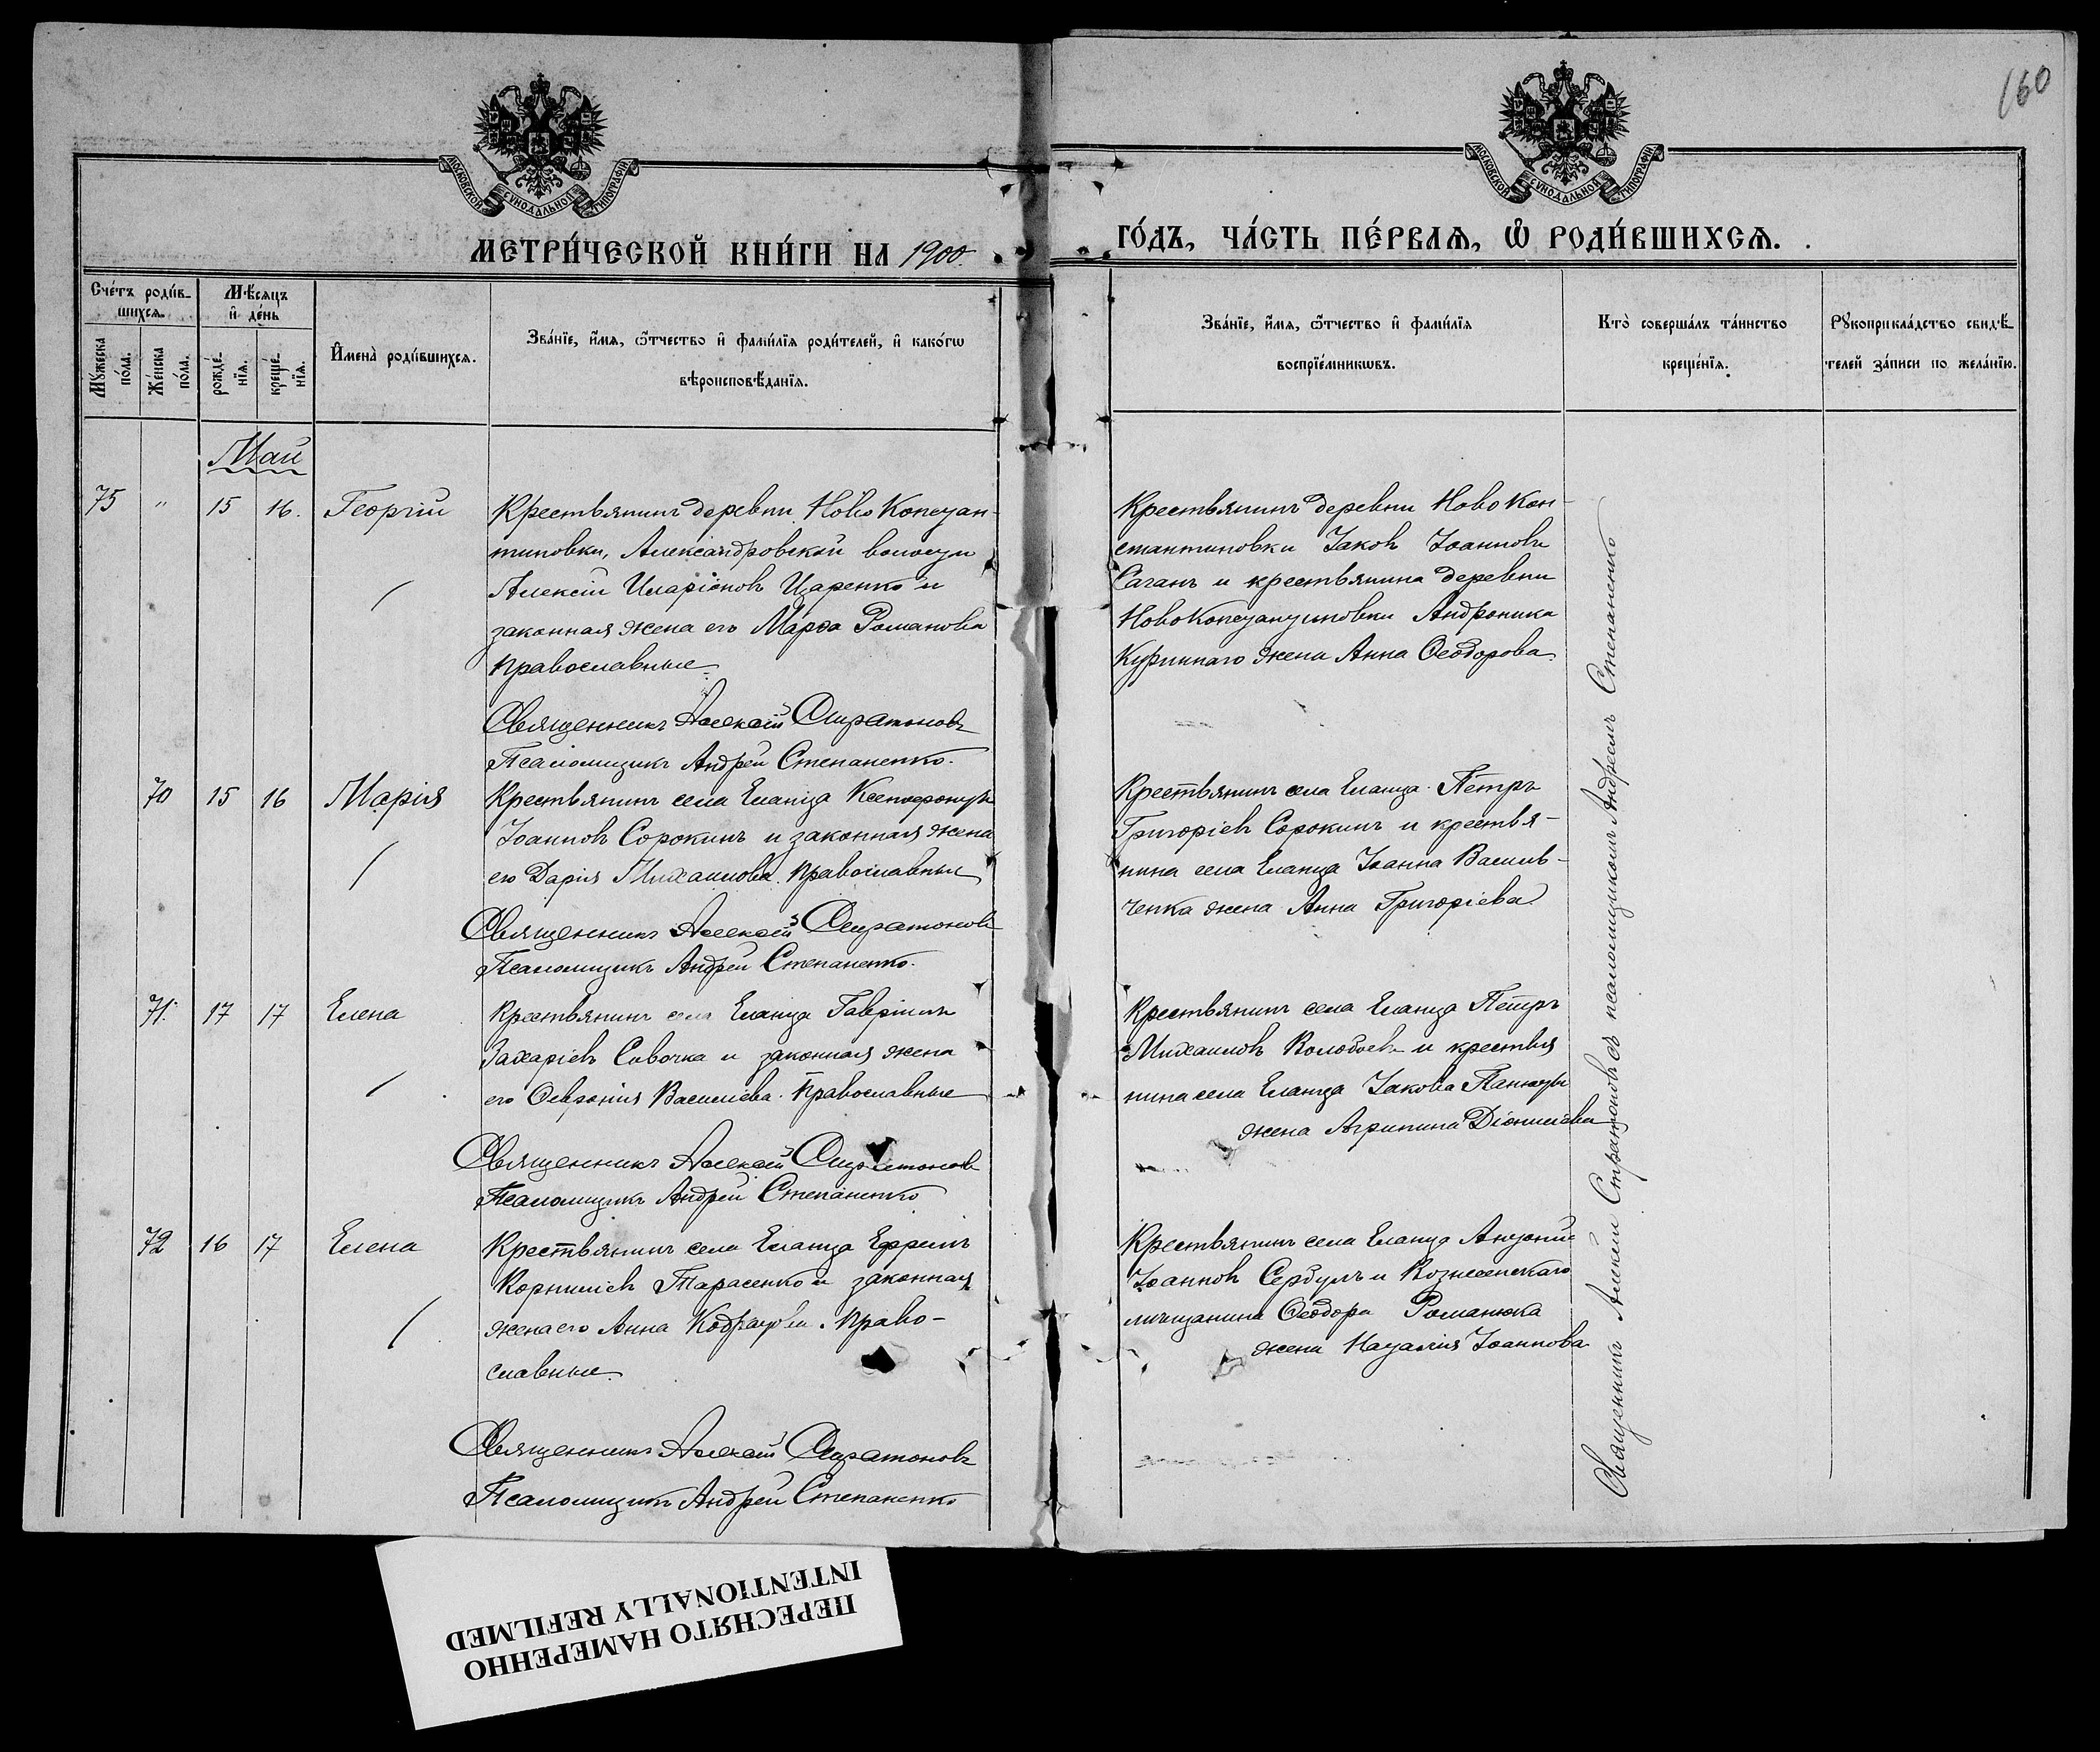 160
МОСКОВСКОЙ СѴНОДАЛЬНОЙ ТИПОГРАФІИ
МОСКОВСКОЙ СѴНОДАЛЬНОЙ ТИПОГРАФІИ
МЕТРИ́ЧЕСКОЙ КНИ́ГИ НА 1900.
ГО́ДЪ, ЧА́СТЬ ПЕ́РВАЯ, Ѽ РОДИ́ВШИХСЯ.
Сче́тъ роди́в-
шихся.
Му́жеска по́ла.
Же́нска по́ла.
Мѣ́сяцъ
и҆ де́нь
рожде́нїя.
креще́нїя.
И҆мена̀ роди́вшихся.
Зва́нїе, и҆́мя, ѻ҆́тчество и҆ фами́лїя роди́телей, и҆ како́гѡ
вѣроисповѣ́данїя.
Зва́нїе, и҆́мя, ѻ҆́тчество и҆ фами́лїя
воспрїе́мникѡвъ.
Кто̀ соверша́лъ та́инство
креще́нїя.
Рꙋкоприкла́дство свидѣ́-
телей за́писи по жела́нїю.
Май
75 " 15 16. Георгій
Крестьянинъ деревни Ново Констан-
тиновки, Александровской волости
Алексій Иларіоновъ Царенко и
законная жена его Марѳа Романова
православные.
Священникъ Алексій Стратоновъ
Псаломщикъ Андрей Степаненко.
Крестьянинъ деревни Ново Кон-
стантиновки Іаковъ Іоанновъ
Саганъ и крестьянина деревни
НовоКонстантиновки Андроника
Куриннаго жена Анна Ѳеодорова.
70 15 16 Марія
Крестьянинъ села Еланца Ксенофонтъ
Іоанновъ Сорокинъ и законная жена
его Дарія Михаилова. православные
Священникъ Алексій Стратоновъ
Псаломщикъ Андрей Степаненко.
Крестьянинъ села Еланца Петръ
Григоріевъ Сорокинъ и крестья-
нина села Еланца Іоанна Василь-
ченка жена Анна Григоріева
71. 17 17 Елена
Крестьянинъ села Еланца Гавріилъ
Захаріевъ Савочка и законная жена
его Ѳевронія Василіева. Православные
Священникъ Алексій Стратоновъ
Псаломщикъ Андрей Степаненко
Крестьянинъ села Еланца Петръ
Михаиловъ и крестья
нина села Еланца Іакова
жена Агрипина Діонисіева
72 16 17 Елена
Крестьянинъ села Еланца Ефремъ
Корниліевъ Тарасенко и законная
жена его Анна Кодратова. Право-
славные.
Священникъ Алексій Стратоновъ
Псаломщикъ Андрей Степаненко
Крестьянинъ села Еланца Антоній
Іоанновъ Сербулъ и Вознесенскаго
мѣщанина Ѳеодора Романюка
жена Наталія Іоаннова
Священникъ Алексій Стратоновъ съ псаломщикомъ Андреемъ Степаненко
ПЕРЕСНЯТО НАМЕРЕННО
INTENTIONALLY REFILMED